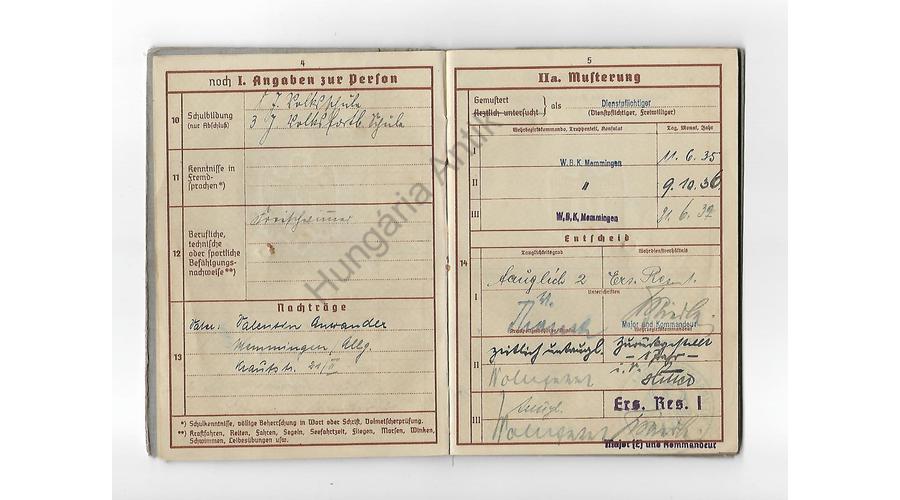 4
noch I. Angaben zur Person
10
Schulbildung
(nur Abschluß)
7 J. Volksschule
3 J Volksfortb. Schule
11
Kenntnisse in
Fremd-
sprachen*)
12
Berufliche,
technische
oder sportliche
Befähigungs-
nachweise**)
Freischwimmer
Nachträge
13
Vater: Valentin Anwander
Memmingen, Allg.
*) Schulkenntnisse, völlige Beherrschung in Wort oder Schrift, Dolmetscherprüfung.
**) Kraftfahren, Reiten, Fahren, Segeln, Seefahrtzeit, Fliegen, Morsen, Winken,
Schwimmen, Leibesübungen usw.
5
IIa. Musterung
Gemustert
Ärztlich untersucht
als
Dienstpflichtiger
(Dienstpflichtiger, Freiwilliger)
Wehrbezirkskommando, Truppenteil, Konsulat
Tag, Monat, Jahr
I
W.B.K. Memmingen
11.6.35
II
"
9.10.36
III
W.B.K. Memmingen
Entscheid
14
Tauglichkeitsgrad
Wehrdienstverhältnis
I
tauglich 2
Ers. Res. I.
Unterschriften
Major und Kommandeur
II
zeitlich untaugl.
Zurückgestellt
- 1 Jahr -
III
taugl.
Ers. Res. I
Major (E) und Kommandeur
Hungária Antik